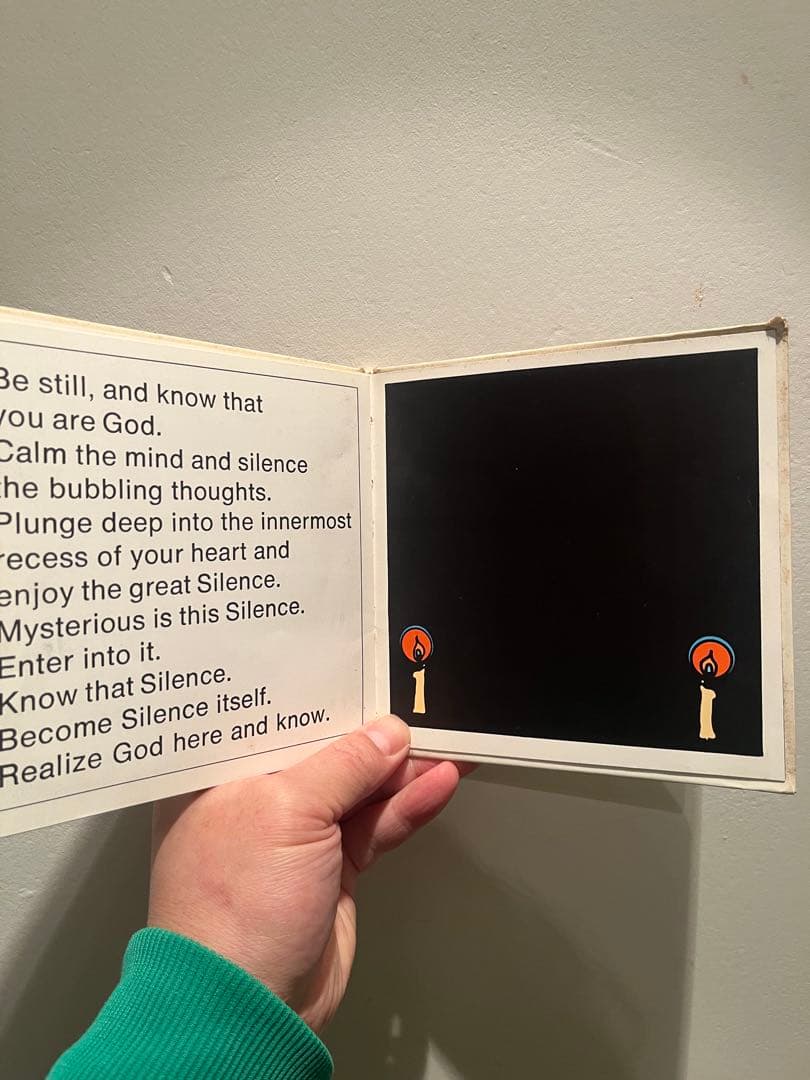 Be still, and know that
you are God.
Calm the mind and silence
the bubbling thoughts.
Plunge deep into the innermost
recess of your heart and
enjoy the great Silence.
Mysterious is this Silence.
Enter into it.
Know that Silence.
Become Silence itself.
Realize God here and know.